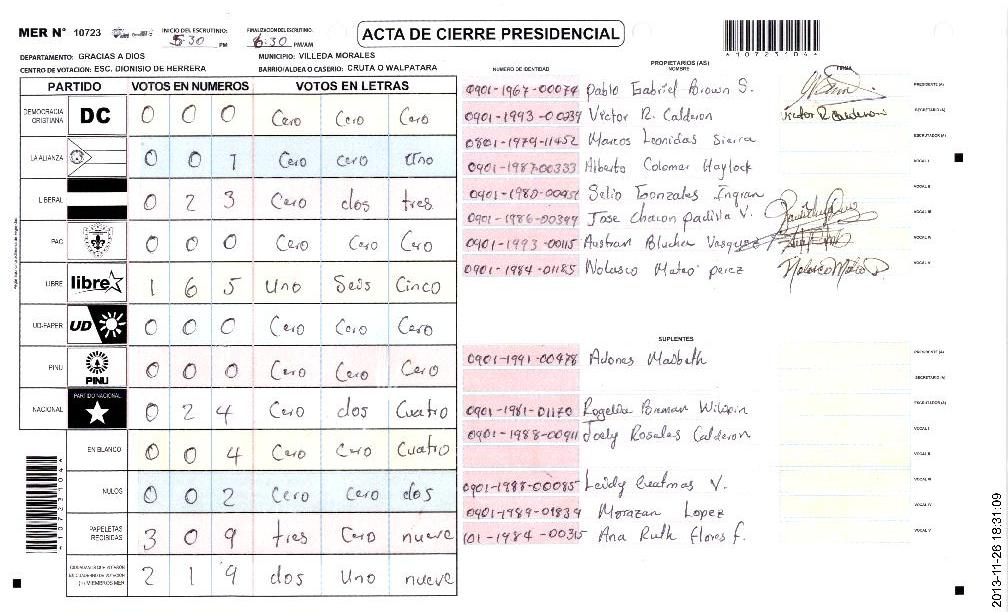 MER N° 10723
INICIO DEL ESCRUTINIO: 5:30 PM
FINALIZACION DEL ESCRUTINIO: 6:30 PM/AM
ACTA DE CIERRE PRESIDENCIAL
A10723104A
DEPARTAMENTO: GRACIAS A DIOS
MUNICIPIO: VILLEDA MORALES
CENTRO DE VOTACION: ESC. DIONISIO DE HERRERA
BARRIO/ALDEA O CASERIO: CRUTA O WALPATARA
PARTIDO VOTOS EN NUMEROS VOTOS EN LETRAS
DEMOCRACIA CRISTIANA DC 0 0 0 Cero Cero Cero
LA ALIANZA 0 0 1 Cero cero Uno
LIBERAL 0 2 3 Cero dos tres
PAC 0 0 0 Cero Cero Cero
LIBRE libre 1 6 5 Uno Seis Cinco
UD-FAPER UD 0 0 0 Cero Cero Cero
PINU PINU 0 0 0 Cero Cero Cero
NACIONAL PARTIDO NACIONAL 0 2 4 Cero dos Cuatro
EN BLANCO 0 0 4 Cero Cero Cuatro
NULOS 0 0 2 Cero Cero dos
PAPELETAS RECIBIDAS 3 0 9 tres Cero nueve
CIUDADANOS QUE VOTARON EN CUADERNO DE VOTACION (+) MIEMBROS MER 2 1 9 dos Uno nueve
A10723104A
NUMERO DE IDENTIDAD
PROPIETARIOS (AS)
NOMBRE
FIRMA
0901-1967-00074 Pablo Gabriel Brown S. PRESIDENTE (A)
0901-1993-00339 Victor R. Calderon Victor R Calderon SECRETARIO (A)
0801-1979-11452 Marcos Leonidas Sierra ESCRUTADOR (A)
0901-1987-00333 Alberto Colomer Haylock VOCAL I
0901-1980-00451 Selio Gonzales Ingran VOCAL II
0901-1986-00399 Jose chacon padilla V. VOCAL III
0901-1993-00115 Austran Blucha Vasquez VOCAL IV
0901-1984-01185 Nolasco Mateo perez VOCAL V
SUPLENTES
0901-1991-00478 Adones Maibeth PRESIDENTE (A)
SECRETARIO (A)
0901-1981-01170 Rogelio Wilspin ESCRUTADOR (A)
0901-1988-00911 Joely Rosales Calderon VOCAL I
VOCAL II
0901-1988-00085 Leidy V. VOCAL III
0901-1989-01839 Morazan Lopez VOCAL IV
101-1984-00315 Ana Ruth Flores f. VOCAL V
2013-11-26 18:31:09